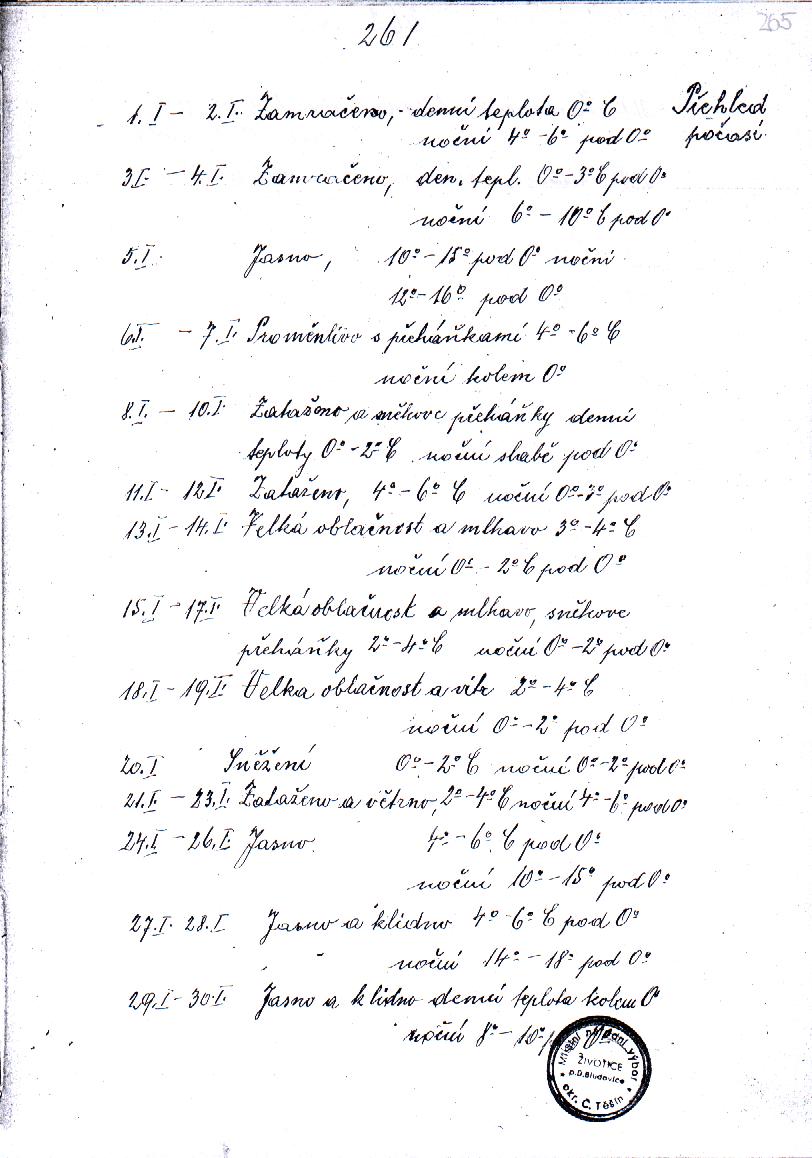 261
265
Přehled
počasí
1.I – 2.I. Zamračeno, - denní teplota 0° C
noční 4° - 6° pod 0°
3.I. – 4.I. Zamračeno, den. tepl. 0° - 3° C pod 0°
noční 6° - 10° C pod 0°
5.I. Jasno, 10° - 15° pod 0° noční
12° - 16° pod 0°
6.I. – 7.I. Proměnlivo s přeháňkami 4° - 6° C
noční kolem 0°
8.I. – 10.I. Zataženo a sněhove přeháňky denní
teploty 0° - 2° C noční slabě pod 0°
11.I – 12.I. Zataženo, 4° - 6° C noční 0° - 2° pod 0°
13.I – 14.I. Velká oblačnost a mlhavo 3° - 4° C
noční 0° - 2° C pod 0°
15.I – 17.I. Velká oblačnost a mlhavo, sněhove
přeháňky 2° - 4° C noční 0° - 2° pod 0°
18.I – 19.I. Velka oblačnost a vítr 2° - 4° C
noční 0° - 2° pod 0°
20.I Sněžení 0° - 2° C noční 0° - 2° pod 0°
21.I – 23.I. Zataženo a větrno, 2° - 4° C noční 4° - 6° pod 0°
24.I – 26.I. Jasno 4° - 6° C pod 0°
noční 10° - 15° pod 0°
27.I. 28.I Jasno a klidno 4° - 6° C pod 0°
noční 14° - 18° pod 0°
29.I – 30.I. Jasno a klidno denní teplota kolem 0°
noční 8° - 10°
Místní národní výbor
ŽIVOTICE
p.D.Bludovice
okr. Č. Těšín